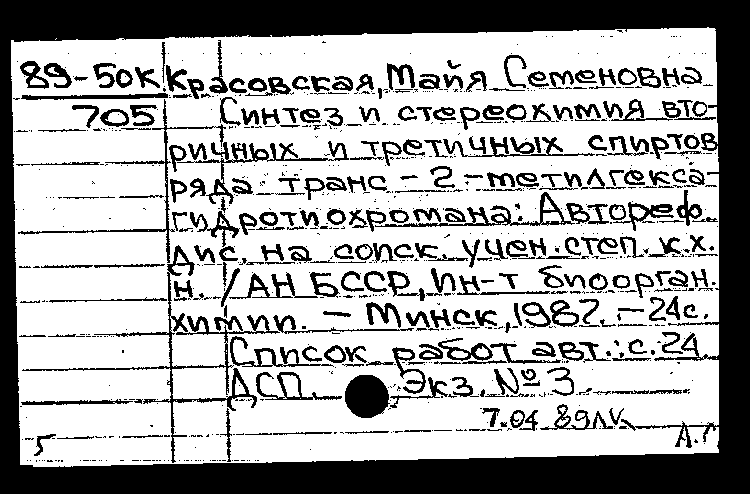 89-50к Красовская, Майя Семеновна
705 Синтез и стереохимия вто-
ричных и третичных спиртов
ряда транс-2-метилгекса-
гидротиохромана: Автореф.
дис. на соиск. учен. степ. к.х.
н. / АН БССР, Ин-т биоорган.
химии. - Минск, 1987. - 24с.
Список работ авт.: с.24.
ДСП. Экз. № 3.
7.04.89
5 А.Г.